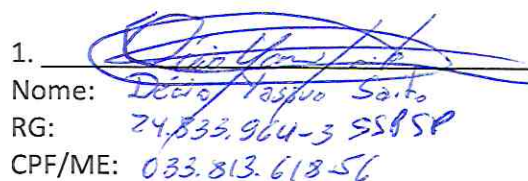 1.
Nome: Décio Yassuo Saito
RG: 24.833.964-3 SSPSP
CPF/ME: 033.813.618-56